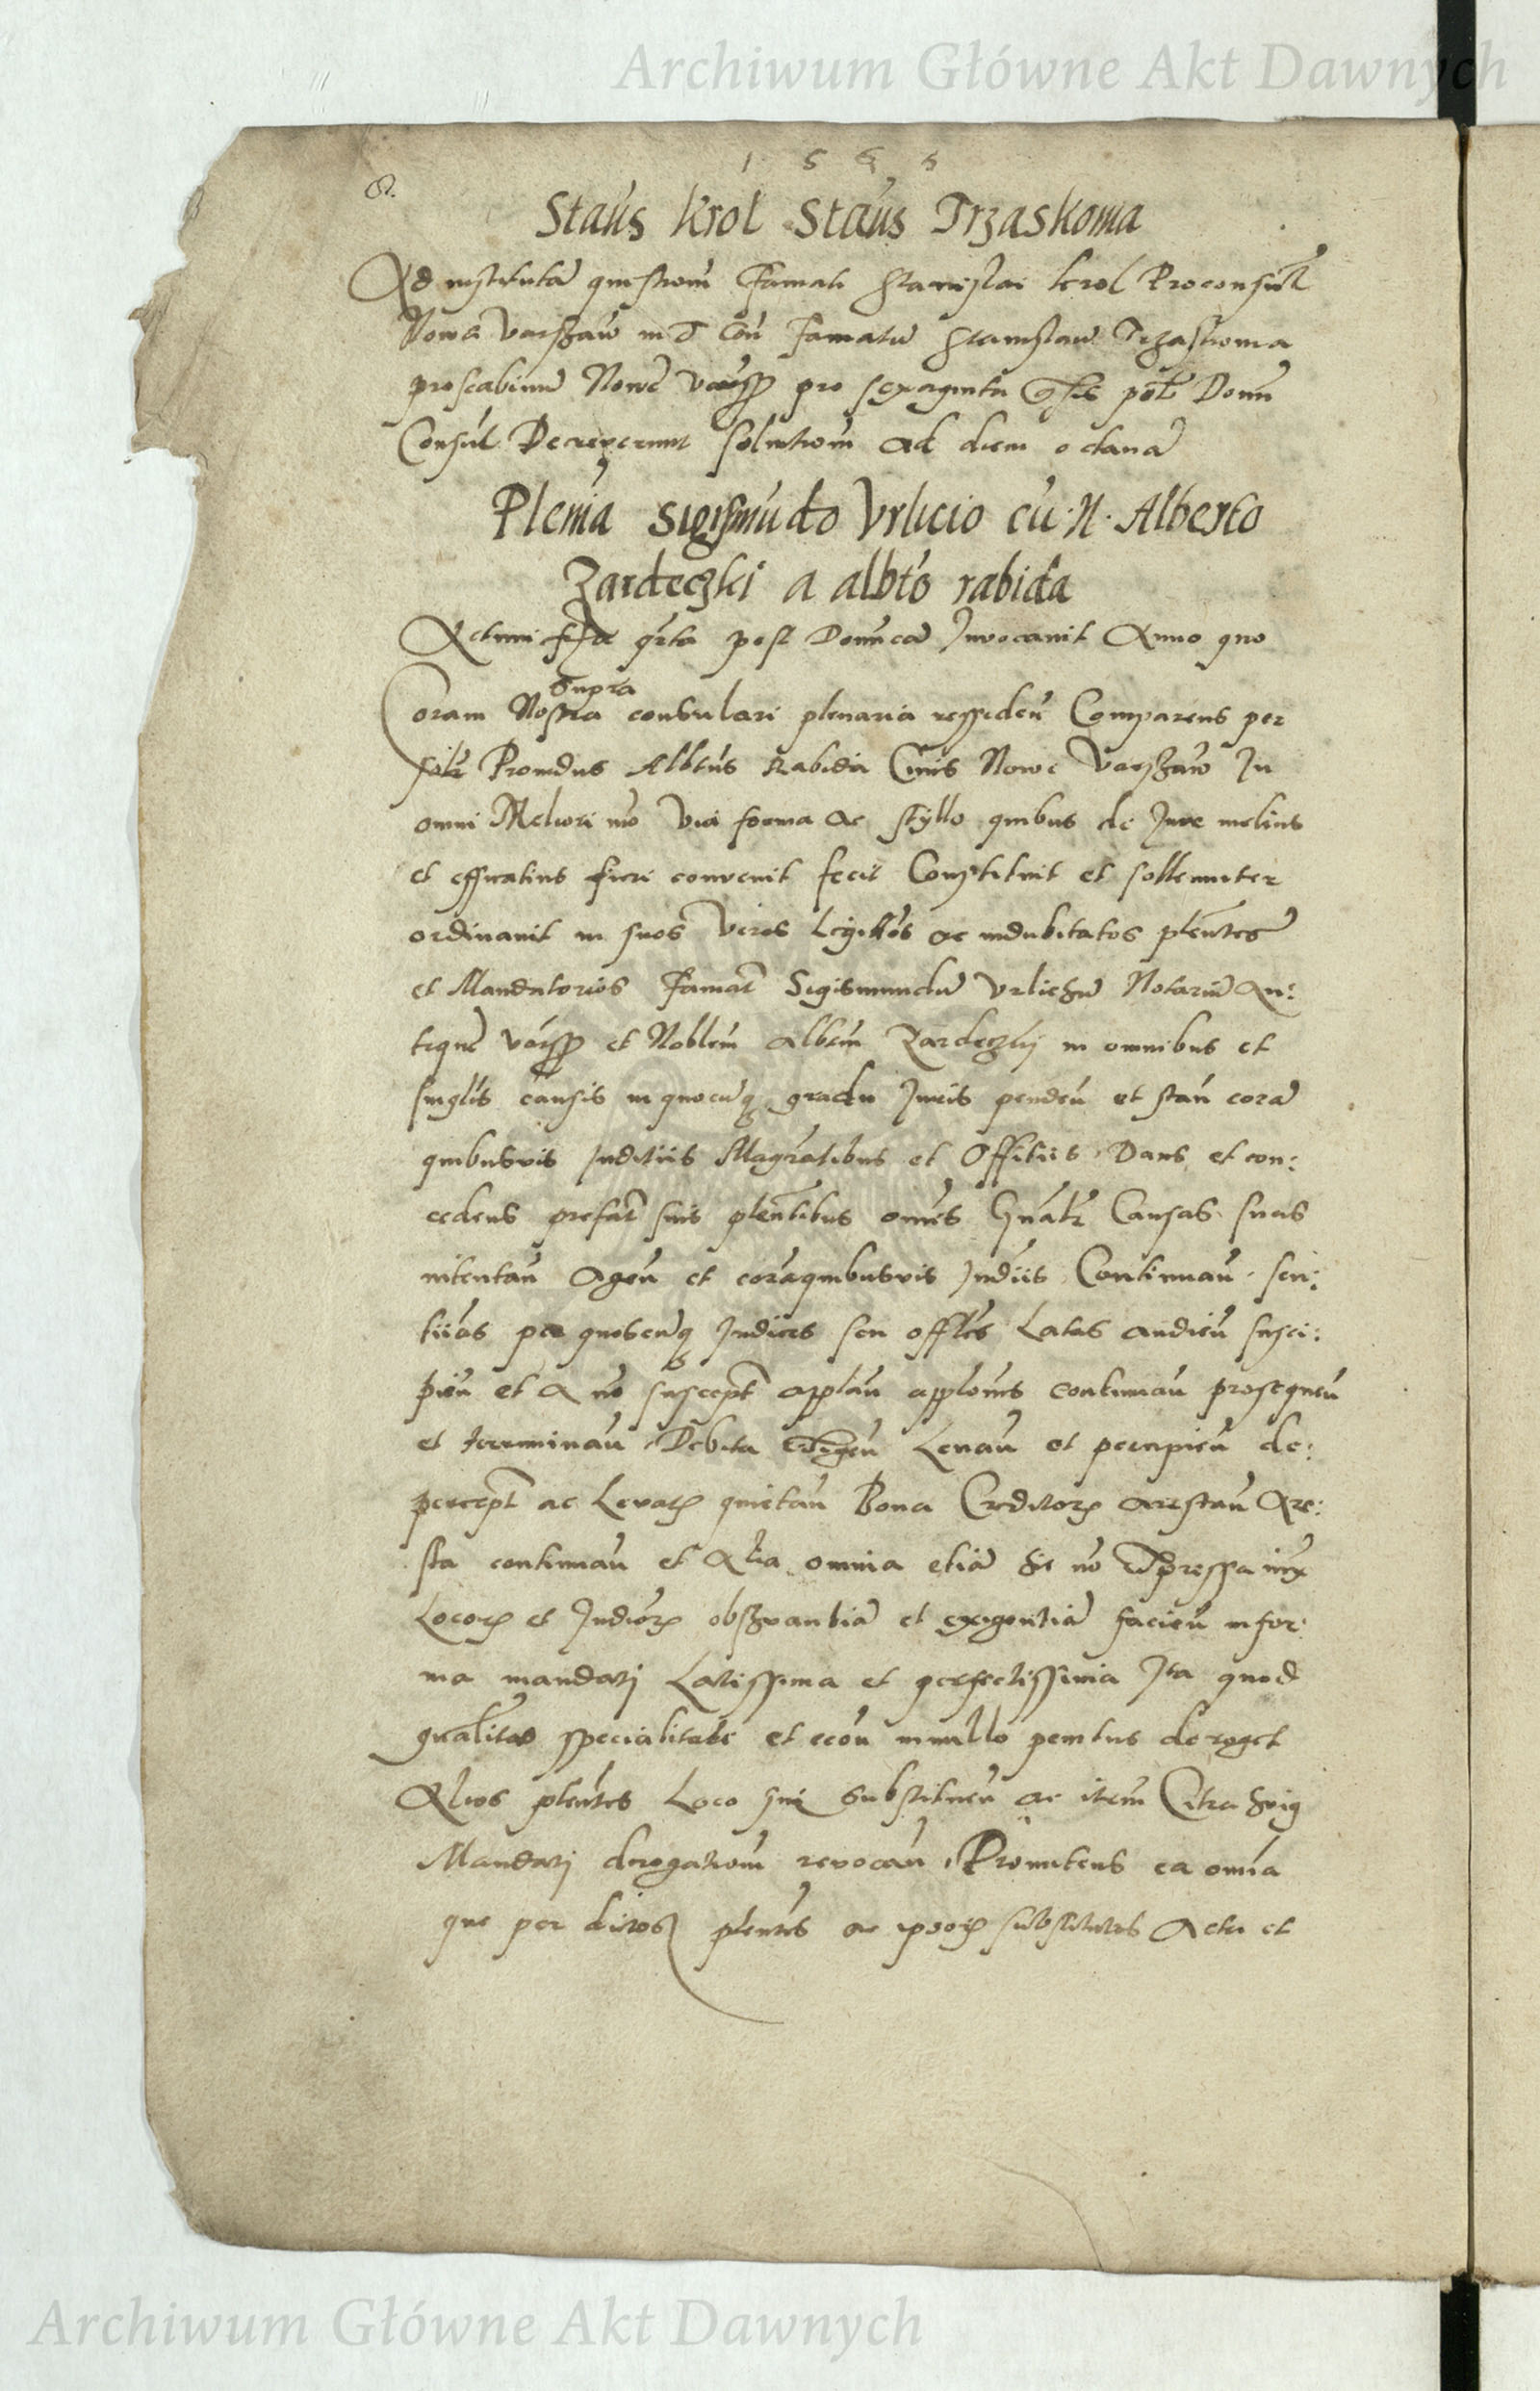 Archiwum Główne Akt Dawnych
1 5 6 5
8.
Staus Krol Staus Trzaskoma
Ad institutā questionē Famati Stanislai krol Proconsul
Nowa Varszaw in et con Famatū Stanislaw Trzaskoma
proscabinū Nowe pro sexaginta Domi
Consul Decreverunt solutionē ad diem octavā
Pleniā Sigismūdo Vrlicio cū N. Alberto
Zardeczki a albto rabida
Actum feria qrta post Domincā Invocavit Anno quo
supra
Coram Nostra consulari plenaria ressideñ Comparens per
Providus Albtus Rabida Civis Nowe Varszaw In
omni Meliori mō via forma ac styllo quibus de Jure melius
et efficatius fieri convenit fecit Constituit et sollemniter
ordinavit in suos veros legittōs ac indubitatos plentes
et Mandatorios Famat Sigismundū Vrliczū Notariū An:
tique et Noblem albtm Zardeczkij in omnibus et
singlis causis in quocūq gradu Juris pendeñ et stañ corā
quibusvis Juditiis Magratibus et Offitiis Dans et con:
cedens prefat suis plentibus omēs Gñalr Causas suas
intentañ Ageñ et corā quibusvis Judiis Continuañ sen:
tiias per quoscūq Judices seu offles Latas audieñ susci:
pieñ et a nō suscept applañ applonis continuañ prosequeñ
et terminañ Debita exigeñ Levañ et percipieñ de:
percept ac Levatr quietañ Bona Creditorr arrestañ Are:
sta continuañ et Alia omnia etiā hic nō expressa iux
Locorr et Judiorr obseruantiā et exigentiā facieñ in for:
ma mandatj Latissima et perfectissima Ita quod
gñalitas specialitate et econ in nullo penitus deroget
Alios plentes Loco sui substitueñ ac item Citra huiq
Mandatj derogationē revocañ Promitens ea omia
que per dictos plentes ac ipsorr substitutos Acta et
Archiwum Główne Akt Dawnych